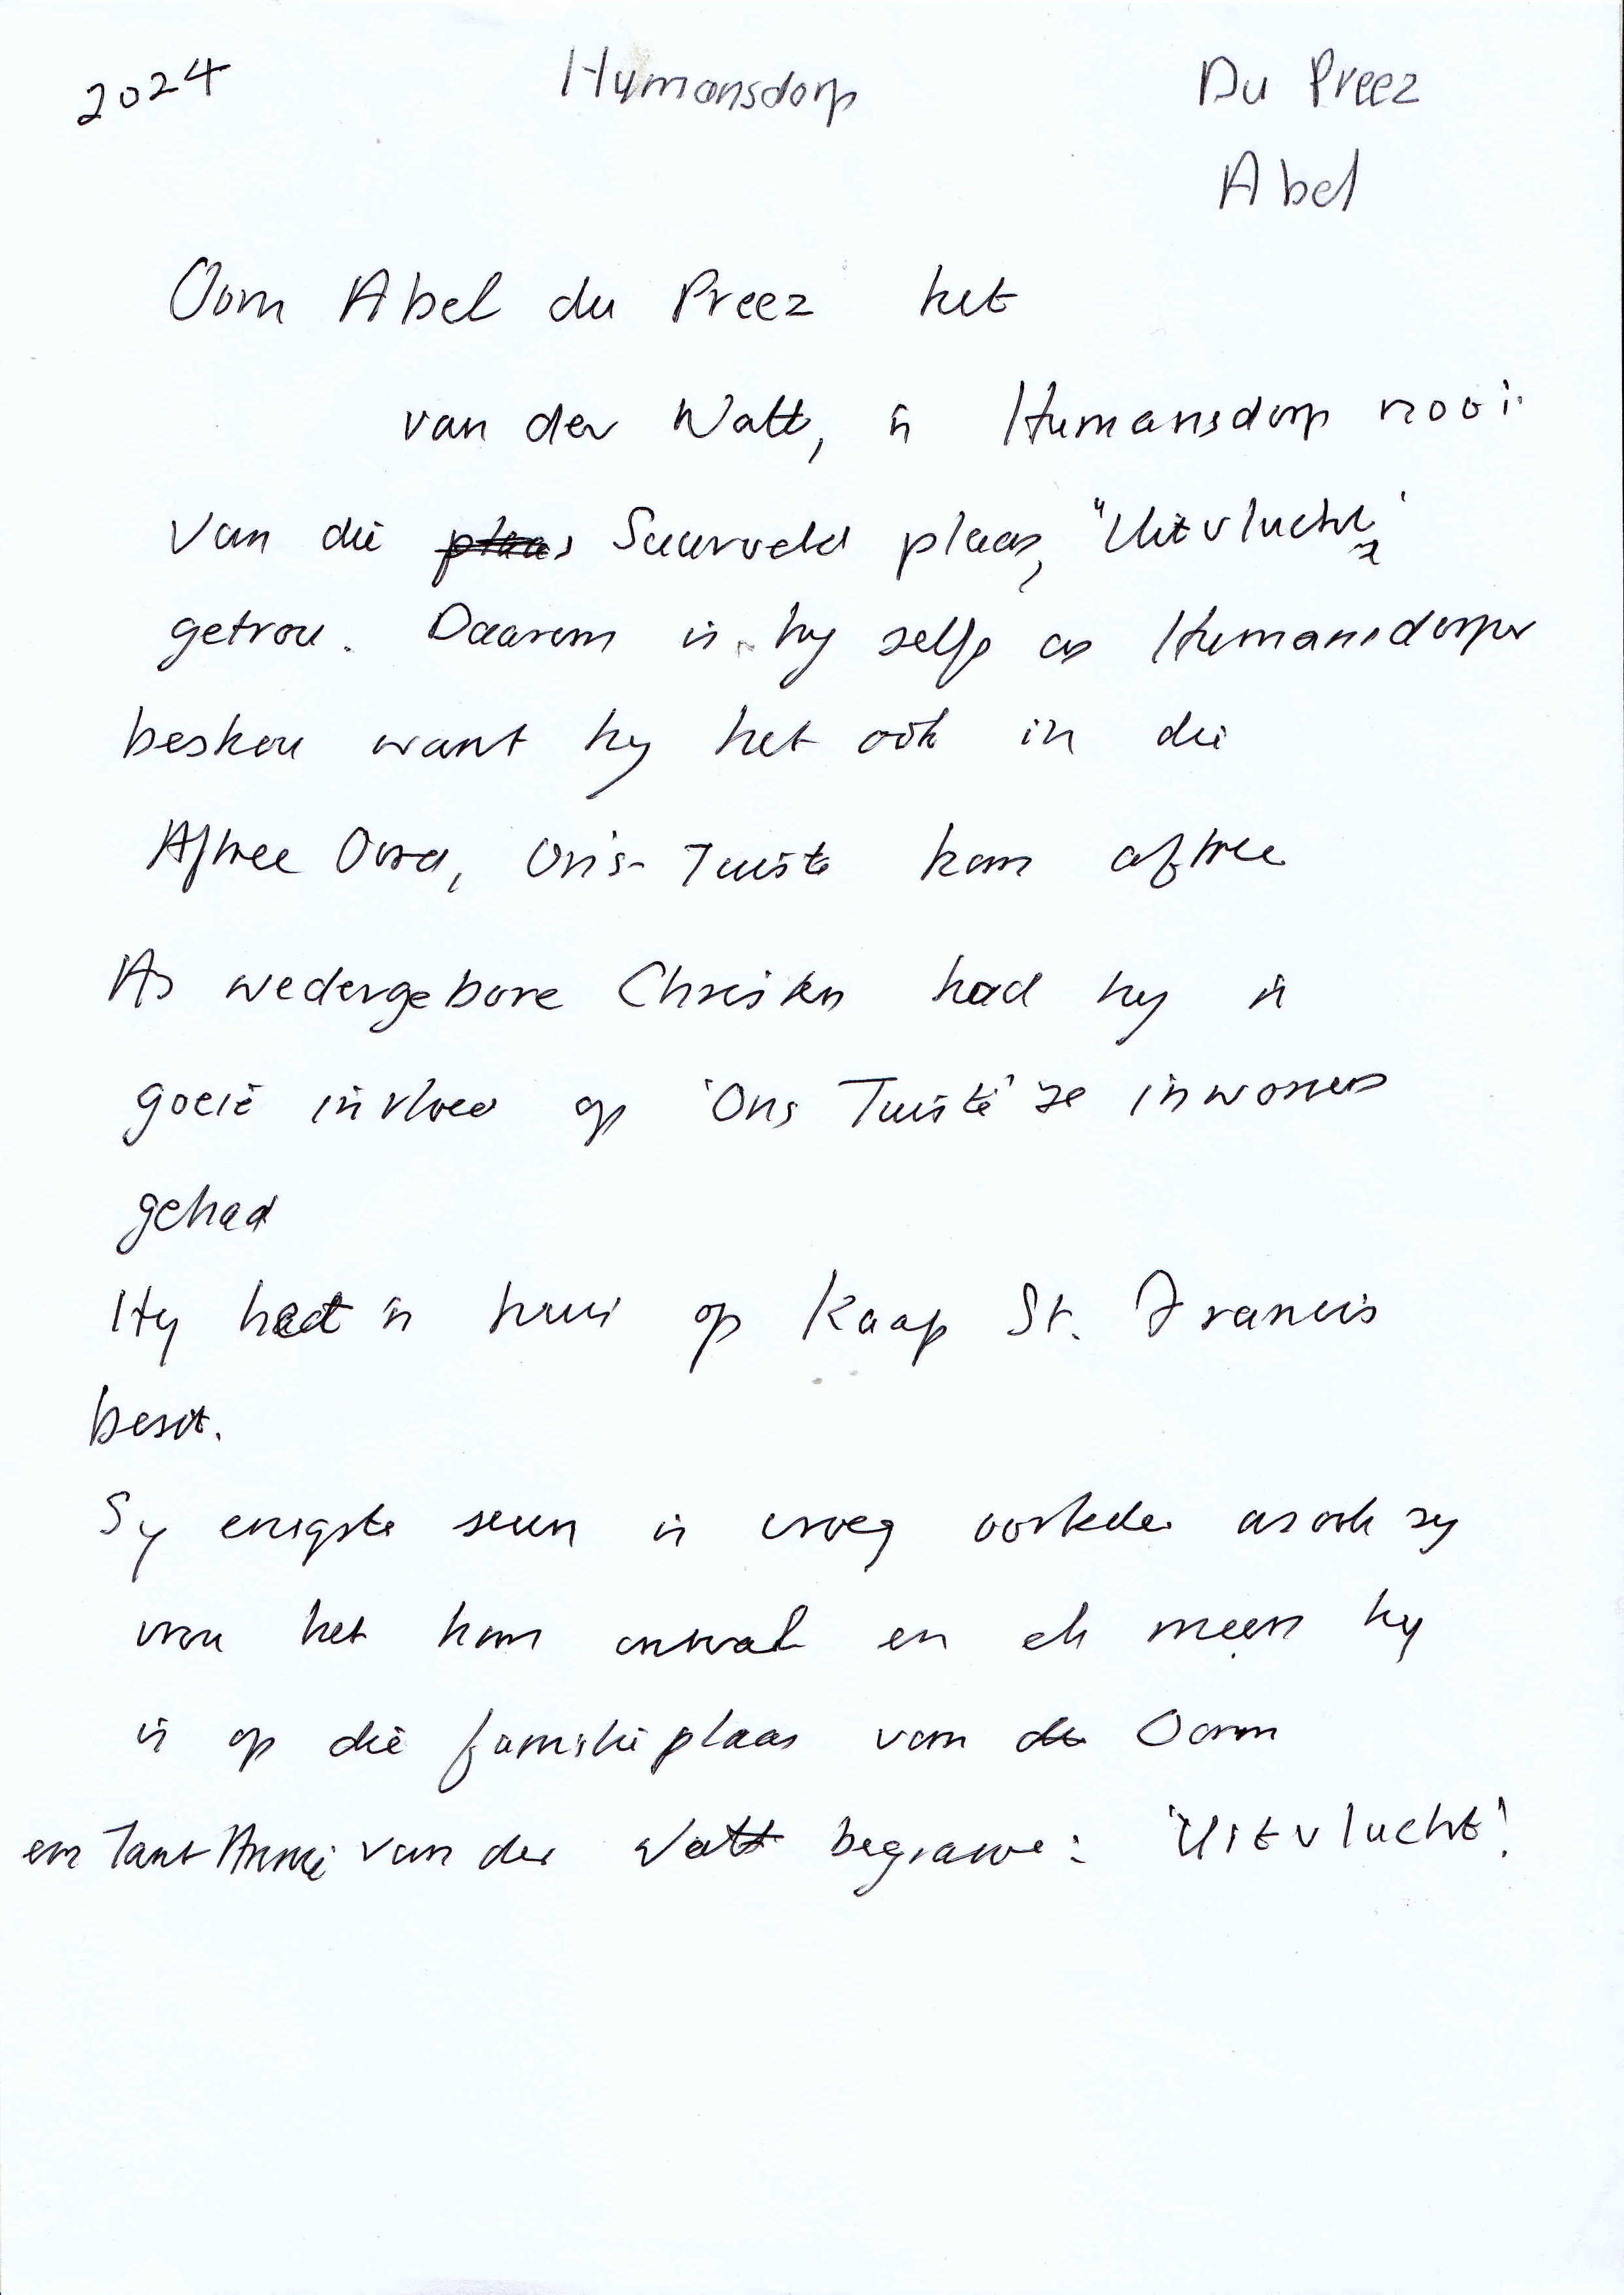 2024 Humansdorp Du Preez
Abel
Oom Abel du Preez het
van der Watt, 'n Humansdorp nooi
van die plaas Suurveld plaas, "Uitvlucht"
getrou. Daarom is hy self as Humansdorper
beskou want hy het ook in die
Aftree Oord, Ons Tuiste kom aftree
As wedergebore Christen had hy 'n
goeie invloed op 'Ons Tuiste' se inwoners
gehad
Hy het 'n huis op Kaap St. Francis
besit.
Sy enigste seun is vroeg oorlede asook sy
vrou het hom ontval en ek meen hy
is op die familieplaas van Oom
en Tant Annie van der Watt begrawe: 'Uitvlucht'.